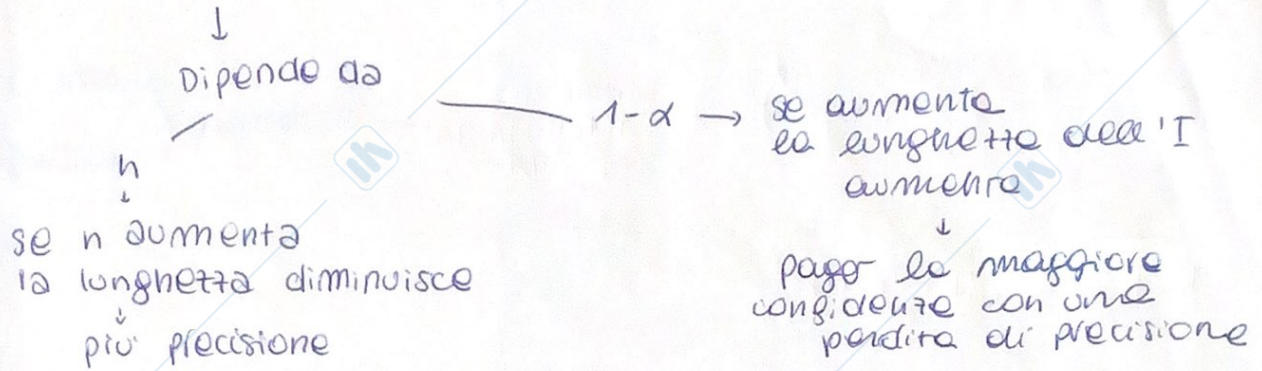 ↓
Dipende da
n
↓
se n aumenta
la lunghezza diminuisce
↓
più precisione
1-α → se aumenta
la lunghezza dell'I
aumenta
↓
pago la maggiore
confidenza con una
perdita di precisione